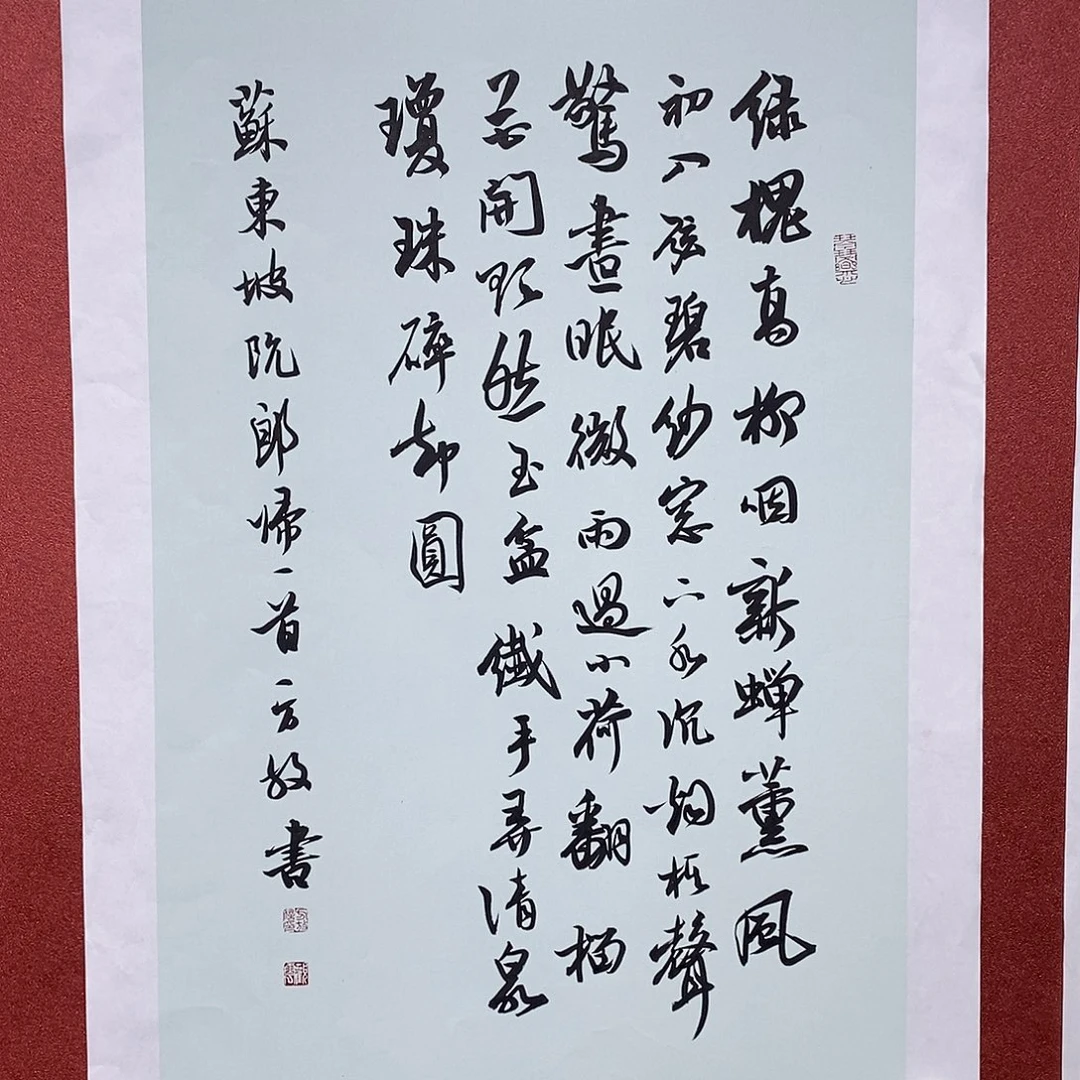 绿槐高柳咽新蝉薰風
初入弦碧纱窓下水沉烟棋聲
驚晝眠微雨過小荷翻榴
花開欲然玉盆纖手弄清泉
瓊珠碎却圓
蘇東坡阮郎歸一首方書